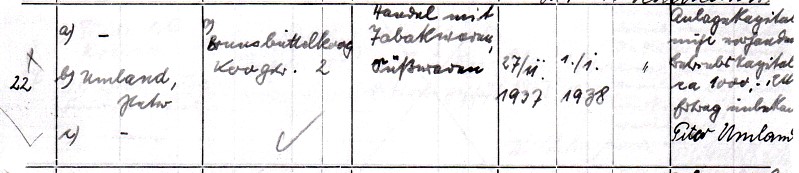 a) -
22 b) Umland,
Peter
c) -
Brunsbüttelkoog
Koogstr. 2
Handel mit
Tabakwaren,
Süßwaren
27/11.
1937
1./1.
1938
"
Anlagekapital
nicht vorhanden
Betriebskapital
ca 1000,-
Ertrag unbekan
Peter Umlan